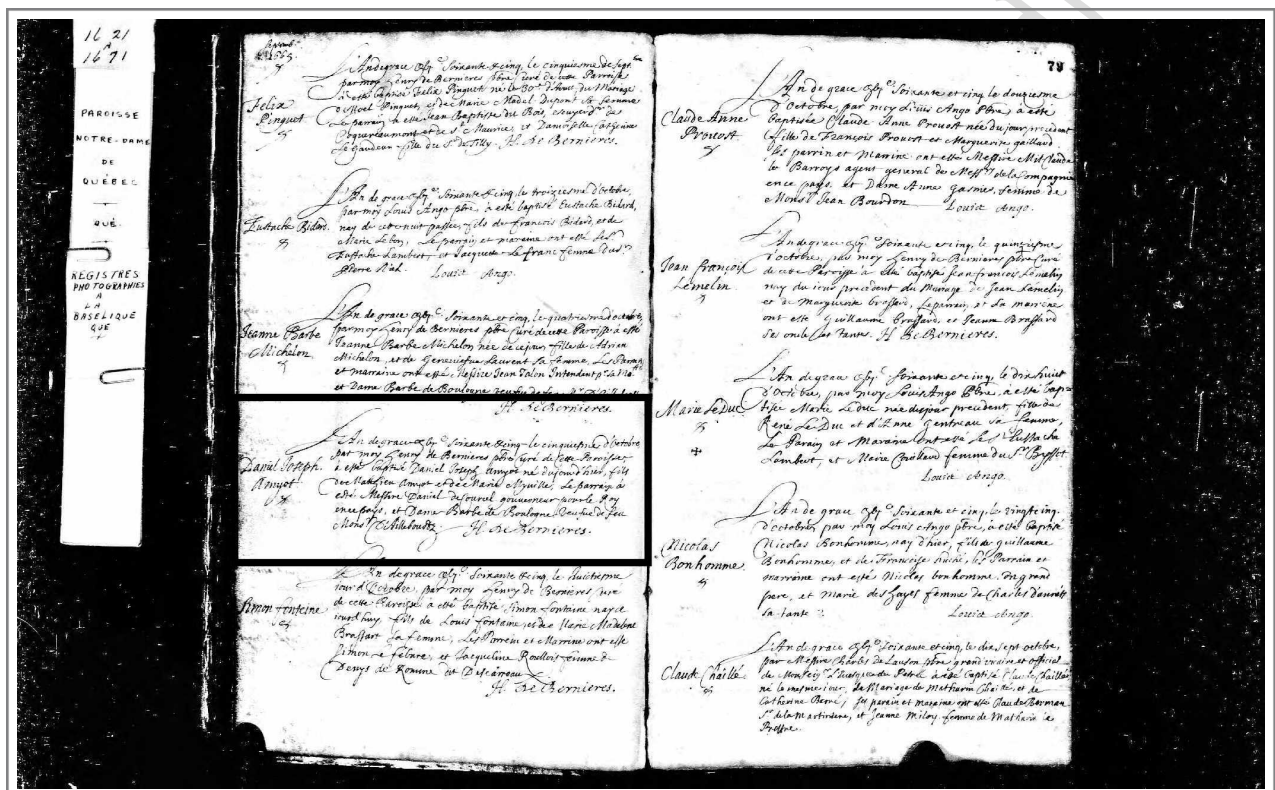 1621
A
1671
PAROISSE
NOTRE-DAME
DE
QUÉBEC
QUÉ.
REGISTRES
PHOTOGRAPHIES
A
LA
BASELIQUE
QUE
1665.
Felix
Pinguet
L'An de grace soixante et cinq, le cinquiesme de sept
par moy Henry de Bernieres pbre curé de cette Paroisse
à esté baptisé Felix Pinguet né le 30 d'Aout, du Mariage
de Noel Pinguet, et de Marie Madel Dupont sa femme
Le parrain a esté Jean Baptiste du Bois, escuyer
et de St Maurice, et Damoiselle
fille du Sr de Tilly. H. de Bernieres.
Eustache Bidard.
L'An de grace soixante et cinq, le troiziesme d'octobre,
par moy Louis Ango pbre, à esté baptisé Eustache Bidard,
nay de cette nuit passée, fils de Francois Bidard, et de
Marie Lebon, Le parrain et maraine ont esté
Eustache Lambert, et Jacquette le franc femme du
Pierre
Louis Ango.
Jeanne Barbe
Michelon.
L'An de grace soixante et cinq, le quatriesme d'octobre
par moy Henry de Bernieres pbre curé de cette Paroisse à esté
Jeanne Barbe Michelon née de ce jour, fille de Adrian
Michelon, et de Geneviefue Laurent sa femme, Les Parrain
et marraine ont esté, Messire Jean Talon Intendant
et Dame Barbe de Boulogne
H. de Bernieres.
Daniel Joseph
Amyot
L'An de grace soixante et cinq le cinquiesme d'Octobre
par moy Henry de Bernieres pbre curé de cette Paroisse
à esté baptisé Daniel Joseph Amyot né du jourd'hier, fils
de Mathieu Amyot et de Marie Myville, Le parrain à
esté Messire Daniel de Courcel gouverneur pour le Roy
en ce pays, et Dame Barbe de Boulogne Veufue de feu
Monsr D'Ailleboust H. de Bernieres.
Simon fonteine
L'An de grace soixante et cinq, le huictiesme
jour d'Octobre, par moy Henry de Bernieres curé
de cette Paroisse à esté baptisé Simon Fontaine nay ce
jourd'huy fils de Louis Fontaine, et de Marie Madelene
Brassart sa femme, Les Parrein et Marrine ont esté
Simon le febure, et Jacqueline Roullois femme de
Denys de Romme dit Descarreau
H. de Bernieres.
79
Claude Anne
Provost
L'An de grace soixante et cinq le douziesme
d'Octobre, par moy Louis Ango Pbre, à esté
baptisée Claude Anne Provost née du jour precedent
fille de François Provost et Marguerite gaillard
les parrin et Marrine ont esté Messire Mil Claude
le Barroys agent general de Messrs de la Compagnie
en ce pays, et Dame Anne Gasnier, femme de
Monsr Jean Bourdon
Louis Ango.
Jean françois
Lemelin
L'An de grace soixante et cinq, le quinziesme
d'octobre, par moy Henry de Bernieres pbre Curé
de cette Paroisse à esté baptisé Jean francois Lemelin
nay du jour precedent du Mariage de Jean Lemelin
et de Marguerite Brassard, Le parrain, et la marrene
ont esté Guillaume Brassard, et Jeanne Brassard
ses oncle et tante. H. de Bernieres.
Marie Le Duc
L'An de grace soixante et cinq, le dix huict
d'Octobre, par moy Louis Ango Pbre, à esté bap-
tisée Marie le Duc née du jour precedent, fille de
René Le Duc et d'Anne Gentreau sa femme,
Le Parain et Maraine ont esté le Sr Eustache
Lambert, et Marie femme du Sr Byssot
Louis Ango.
Nicolas
Bonhomme
L'An de grace soixante et cinq, le vingt cinq
d'octobre, par moy Louis Ango pbre, à esté baptisé
Nicolas Bonhomme, nay d'hier, fils de guillaume
Bonhomme, et de Francoise huché, le Parrain et
marraine ont esté Nicolas bonhomme, son grand
pere, et Marie des Hayes femme de Charles
sa tante
Louis Ango.
Claude Chaillé
L'An de grace soixante et cinq, le dix sept octobre,
par Messire Charles de Lauson pbre grand vicaire et official
de Monseigr L'Evesque de Petrée à esté baptisé Claude Chaillé
né le mesme jour, du Mariage de Mathurin Chaillé, et de
Catherine, ses parain et maraine ont esté Claude Berman
Sr de la Martiniere, et Jeanne Miloy femme de Mathurin la
Prestre.